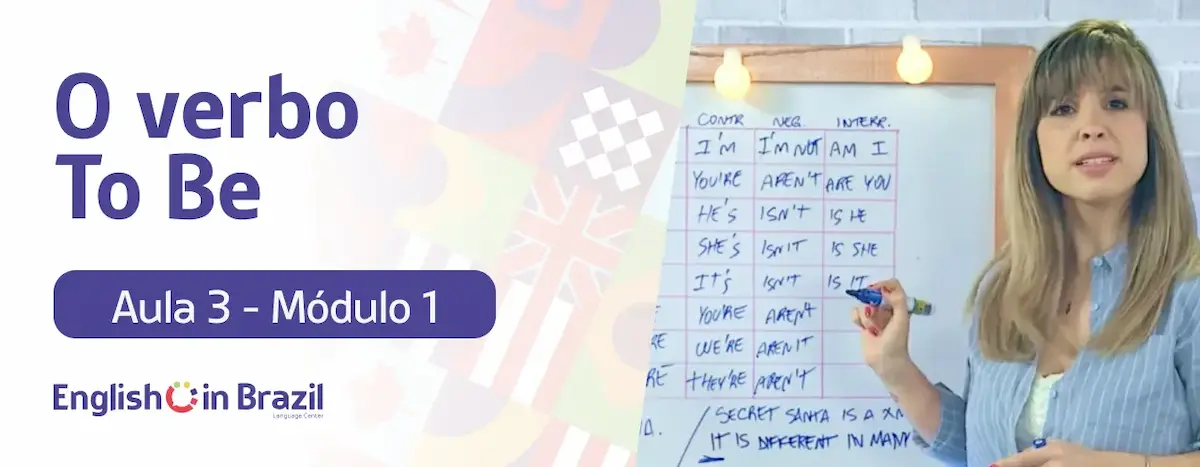 O verbo
To Be
Aula 3 - Módulo 1
English in Brazil
Language Center
CONTR NEG. INTERR.
I'M I'M NOT AM I
YOU'RE AREN'T ARE YOU
HE'S ISN'T IS HE
SHE'S ISN'T IS SHE
IT'S ISN'T IS IT
YOU'RE AREN'T
RE WE'RE AREN'T
RE THEY'RE AREN'T
SECRET SANTA IS A
IT IS DIFFERENT IN MANY